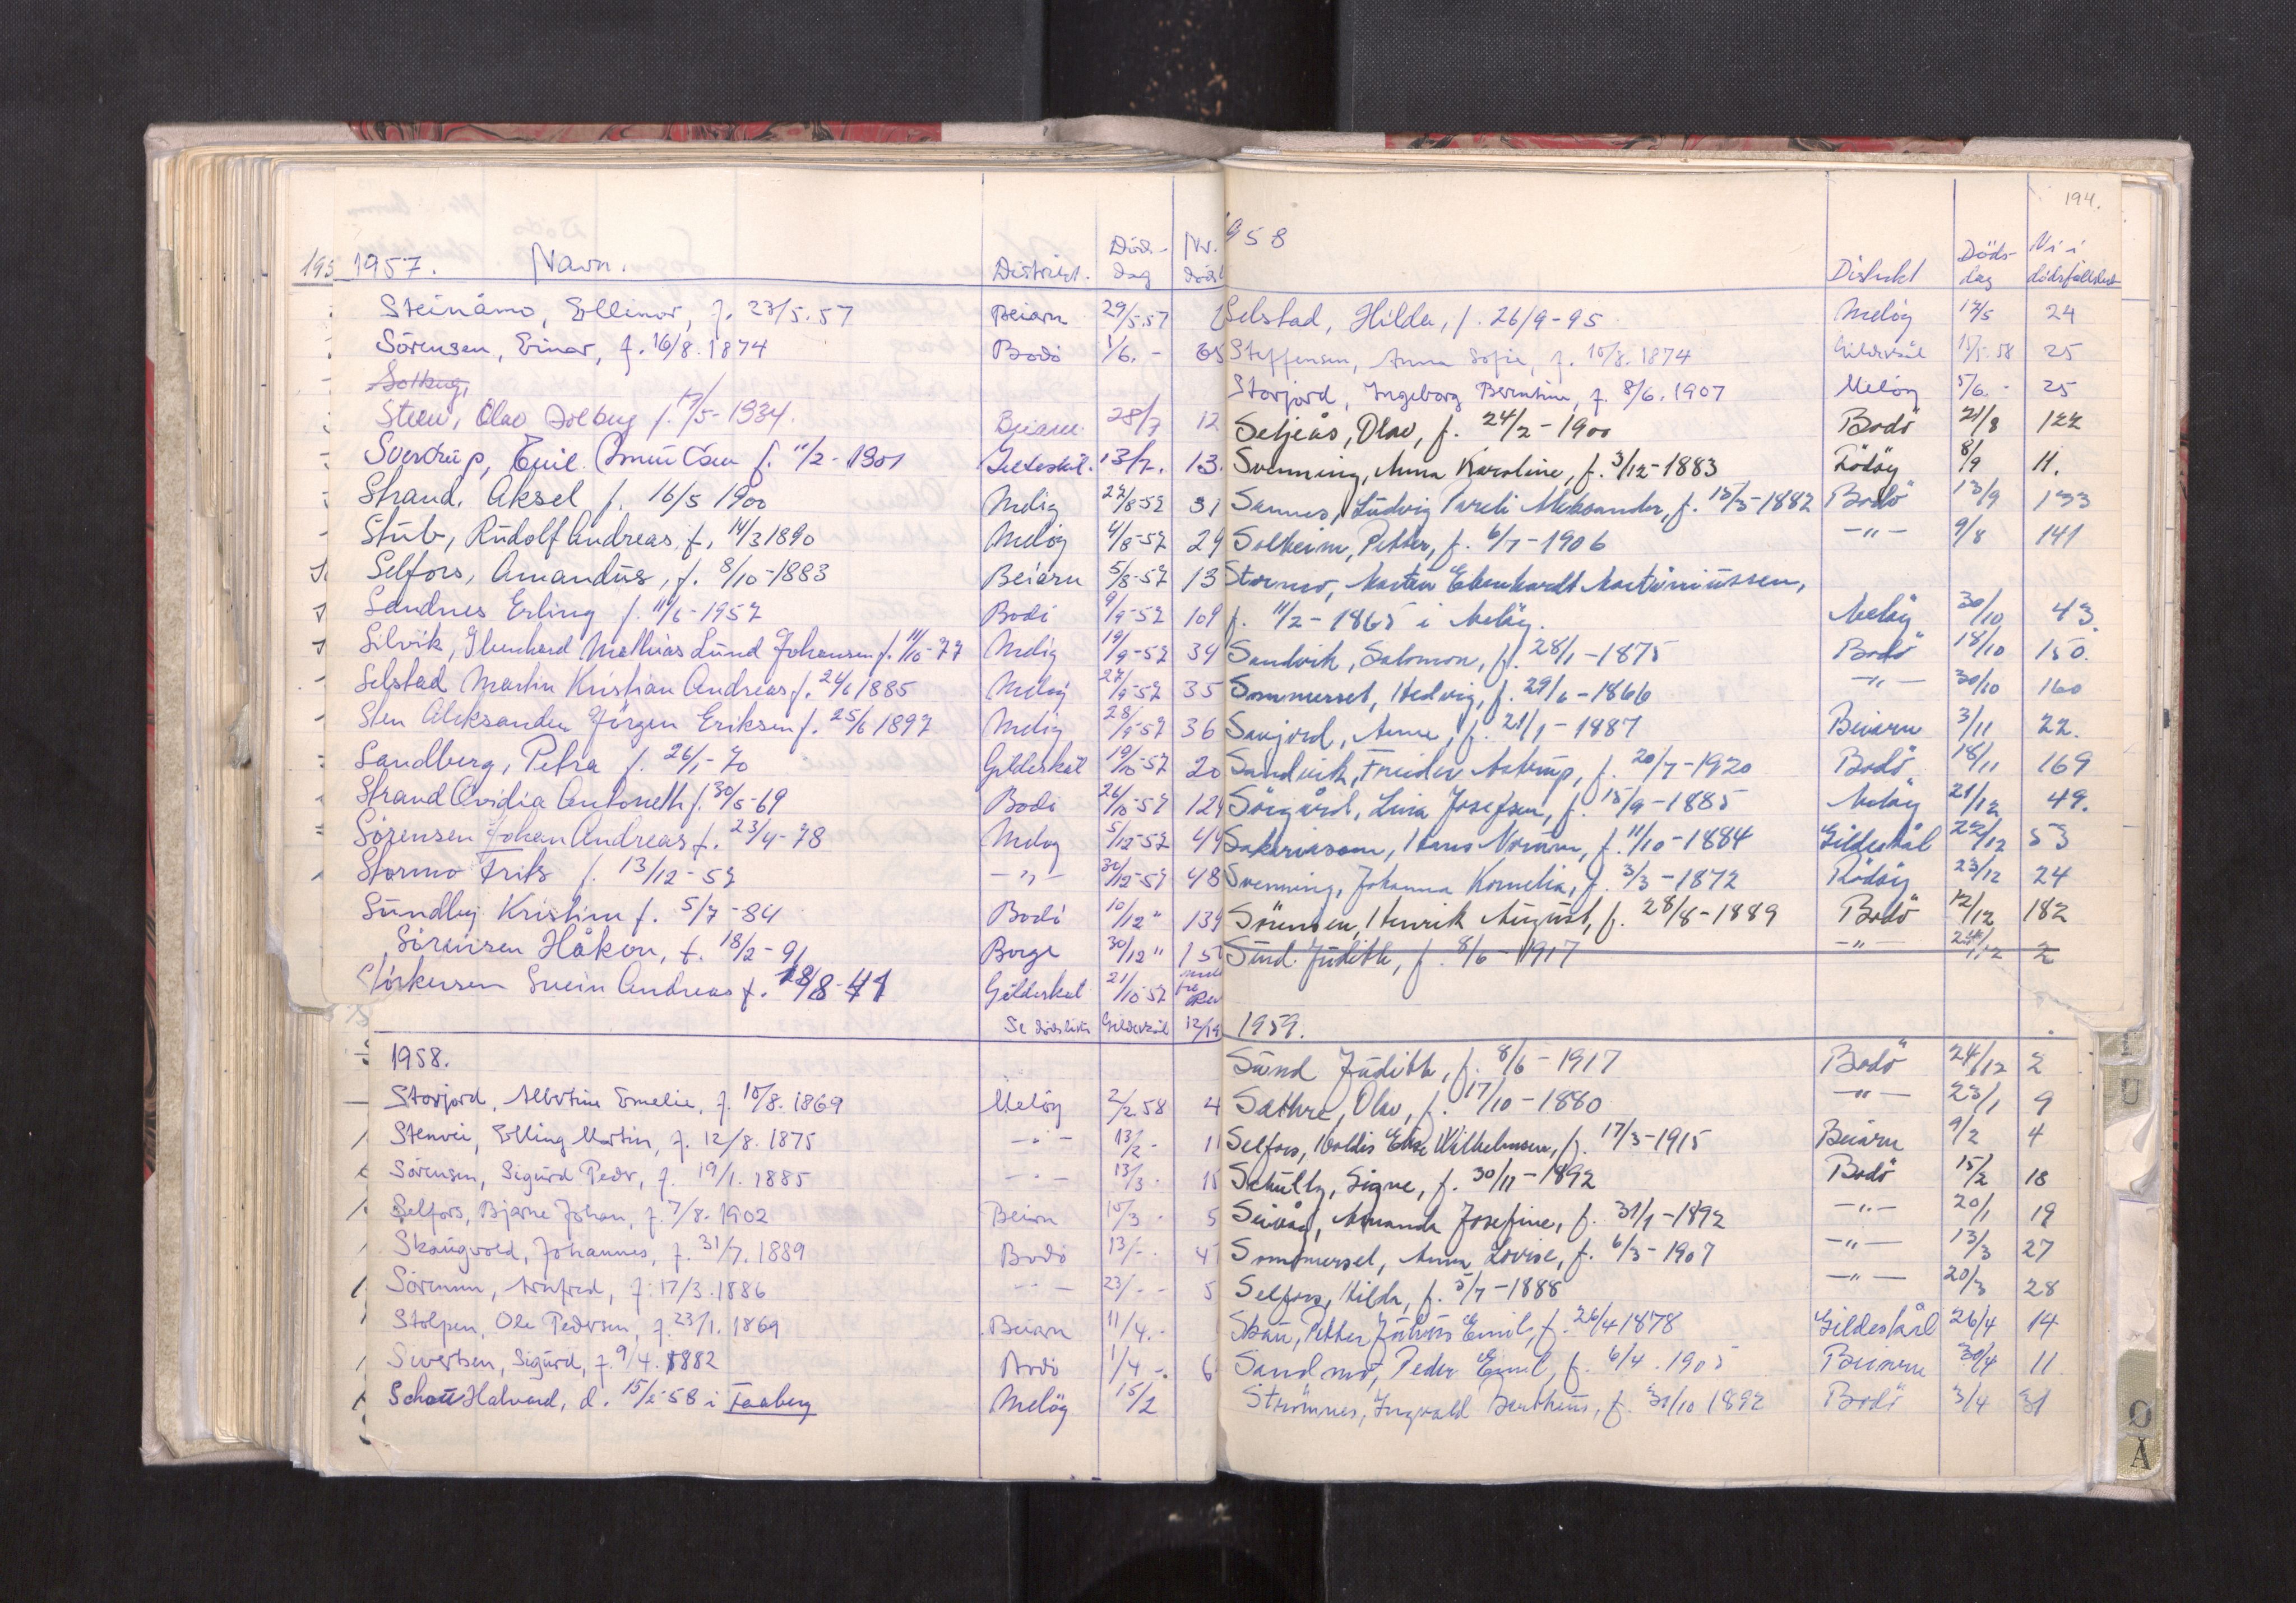 1957. Navn. Distrikt. Döds-dag Nr.
Steinåmo, Ellinor, f. 23/5.57 Beiarn 29/5.57
Sörensen, Einar, f. 16/8.1874 Bodö 1/6. - 65
Solberg,
Steen, Olav Solberg f. 17/5-1934. Beiarn 28/7 12
Sverdrup, Emil f. 11/2-1901 Gildeskål. 13/7. 13.
Strand, Aksel f. 16/5 1900 Melöy 27/8-57 31
Stub, Rudolf Andreas, f. 14/3 1890 Melöy 4/8-57 29
Selfors, Amandus, f. 8/10-1883 Beiarn 5/8-57 13
Sandnes Erling f. 11/6-1957 Bodö 9/9-57 109
Silvik, Ebenhard Mathias Lund Johansen f. 11/10-77 Melöy 19/9-57 34
Selstad Martin Kristian Andreas f. 24/6 1885 Melöy 27/9-57 35
Sten Aleksander Jörgen Eriksen f. 25/6 1897 Melöy 28/9-57 36
Sandberg, Petra f. 26/1-70 Gildeskål 19/10-57 20
Strand Ovidia Antoneth f. 30/5-69 Bodö 26/10-57 124
Sörensen Johan Andreas f. 23/4-78 Melöy 5/12-57 44
Stormo Frits f. 13/12-57 -"- 30/12-57 48
Sundby Kristine f. 5/7-84 Bodö 10/12 " 139
Sörensen Håkon, f. 18/2-91 Borge 30/12 " 15
Störkersen Svein Andreas f. 18/8-41 Gildeskål 21/10-57
Se dödsliste Gildeskål 12/19
1958.
Storjord, Albertine Emelie, f. 15/8.1869 Melöy 2/2 58 4
Stenvei, Elling Martin, f. 12/8.1875 -"- 13/2 - 11
Sörensen, Sigurd Peder, f. 19/1.1885 -"- 13/3 -
Selfors, Bjarne Johan, f. 7/8.1902 Beiarn 15/3 - 5
Skaugvold, Johannes, f. 31/7.1889 Bodö 13/- 4
Sörensen, Arnfred, f. 17/3.1886 -"- 23/- 5
Stolpen, Ole Pedersen, f. 23/1.1869 Beiarn 11/4. -
Sivertsen, Sigurd, f. 9/4.1882 Bodö 1/4 - 6
Schau Halvard, d. 15/2-58 i Faaberg Melöy 15/2
194.
1958 Distrikt Döds-dag Nr i dödsfallslist
Selstad, Hilda, f. 26/9-95 Melöy 17/5 24
Steffensen, Anna Sofie, f. 15/8.1874 Gildeskål 15/5.58 25
Storjord, Ingeborg Berntine, f. 8/6.1907 Melöy 5/6 - 25
Seljeås, Olav, f. 24/2-1900 Bodö 21/8 122
Svenning, Anna Karoline, f. 3/12-1883 Rödöy 8/9 11.
Sannes, Ludvig Pareli Aleksander, f. 15/3-1882 Bodö 13/9 133
Solheim, Petter, f. 6/7-1906 -"- 9/8 141
Stormo, Morten Ebenhardt Martinussen,
f. 11/2-1865 i Melöy. Melöy 30/10 43.
Sandvik, Salomon, f. 28/1-1875 Bodö 18/10 150.
Sommerset, Hedvig, f. 29/6-1866 -"- 30/10 160
Savjord, Anne, f. 21/1-1887 Beiarn 3/11 22.
Sandvik, Freider Astrup, f. 20/7-1920 Bodö 18/11 169
Sörgård, Lina Josefsen, f. 15/9-1885 Melöy 21/12 49.
Sakariassen, Hans Normann, f. 11/10-1884 Gildeskål 22/12 53
Svenning, Johanna Kornelia, f. 3/3-1872 Rödöy 23/12 24
Sörensen, Henrik August, f. 28/8-1889 Bodö 12/12 182
Sund Judith, f. 8/6-1917 -"- 24/12 2
1959.
Sund Judith, f. 8/6-1917 Bodö 24/12 2
Sæthre, Olav, f. 17/10-1880 -"- 23/1 9
Selfors, Valdis Elise Wilhelmsen, f. 17/3-1915 Beiarn 9/2 4
Schultz, Signe, f. 30/11-1892 Bodö 15/2 18
Seivåg, Amanda Josefine, f. 31/1-1892 -"- 20/1 19
Sommerset, Anna Lovise, f. 6/3-1907 -"- 13/3 27
Selfors, Hilda, f. 5/7-1888 -"- 20/3 28
Skau, Petter Julius Emil, f. 26/4 1878 Gildeskål 26/4 14
Sandmo, Peder Emil, f. 6/4.1905 Beiarn 30/4 11
Strömnes, Ingvald Bentheus, f. 31/10 1892 Bodö 3/4 31
Ø
Å